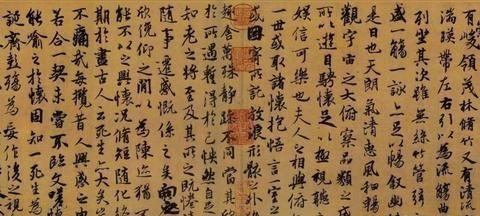 有峻領茂林脩竹又有清
湍暎帶左右引以為流觴曲
列坐其次雖無絲竹管弦
盛一觴一詠亦足以暢敘幽
是日也天朗氣清惠風和暢
觀宇宙之大俯察品類之
所以遊目騁懷足以極視聽
娛信可樂也夫人之相與俯
一世或取諸懷抱悟言一室之
或因寄所託放浪形骸之外
趣舍萬殊靜躁不同當其
於所遇暫得於己怏然自
知老之將至及其所之既惓
隨事遷感慨係之矣向
欣俛仰之閒以為陳迹猶
能不以之興懷況脩短隨化
期於盡古人云死生亦大矣
不痛哉每攬昔人興感之
若合一契未嘗不臨文嗟
能喻之於懷固知一死生為
誕齊彭殤為妄作後之視